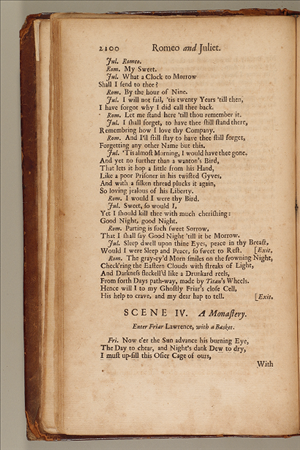 2100 Romeo and Juliet.
Jul. Romeo.
Rom. My Sweet.
Jul. What a Clock to Morrow
Shall I send to thee?
Rom. By the hour of Nine.
Jul. I will not fail, 'tis twenty Years 'till then,
I have forgot why I did call thee back.
Rom. Let me stand here 'till thou remember it.
Jul. I shall forget, to have thee still stand there,
Remembring how I love thy Company.
Rom. And I'll still stay to have thee still forget,
Forgetting any other Name but this.
Jul. 'Tis almost Morning, I would have thee gone,
And yet no further than a wanton's Bird,
That lets it hop a little from his Hand,
Like a poor Prisoner in his twisted Gyves,
And with a silken thread plucks it again,
So loving jealous of his Liberty.
Rom. I would I were thy Bird.
Jul. Sweet, so would I,
Yet I should kill thee with much cherishing:
Good Night, good Night.
Rom. Parting is such sweet Sorrow,
That I shall say Good Night 'till it be Morrow.
Jul. Sleep dwell upon thine Eyes, peace in thy Breast,
Would I were Sleep and Peace, so sweet to Rest. [Exit.
Rom. The gray-ey'd Morn smiles on the frowning Night,
Check'ring the Eastern Clouds with streaks of Light,
And Darkness fleckell'd like a Drunkard reels,
From forth Days path-way, made by Titan's Wheels.
Hence will I to my Ghostly Friar's close Cell,
His help to crave, and my dear hap to tell. [Exit.
SCENE IV. A Monastery.
Enter Friar Lawrence, with a Basket.
Fri. Now e'er the Sun advance his burning Eye,
The Day to chear, and Night's dank Dew to dry,
I must up-fill this Osier Cage of ours,
With